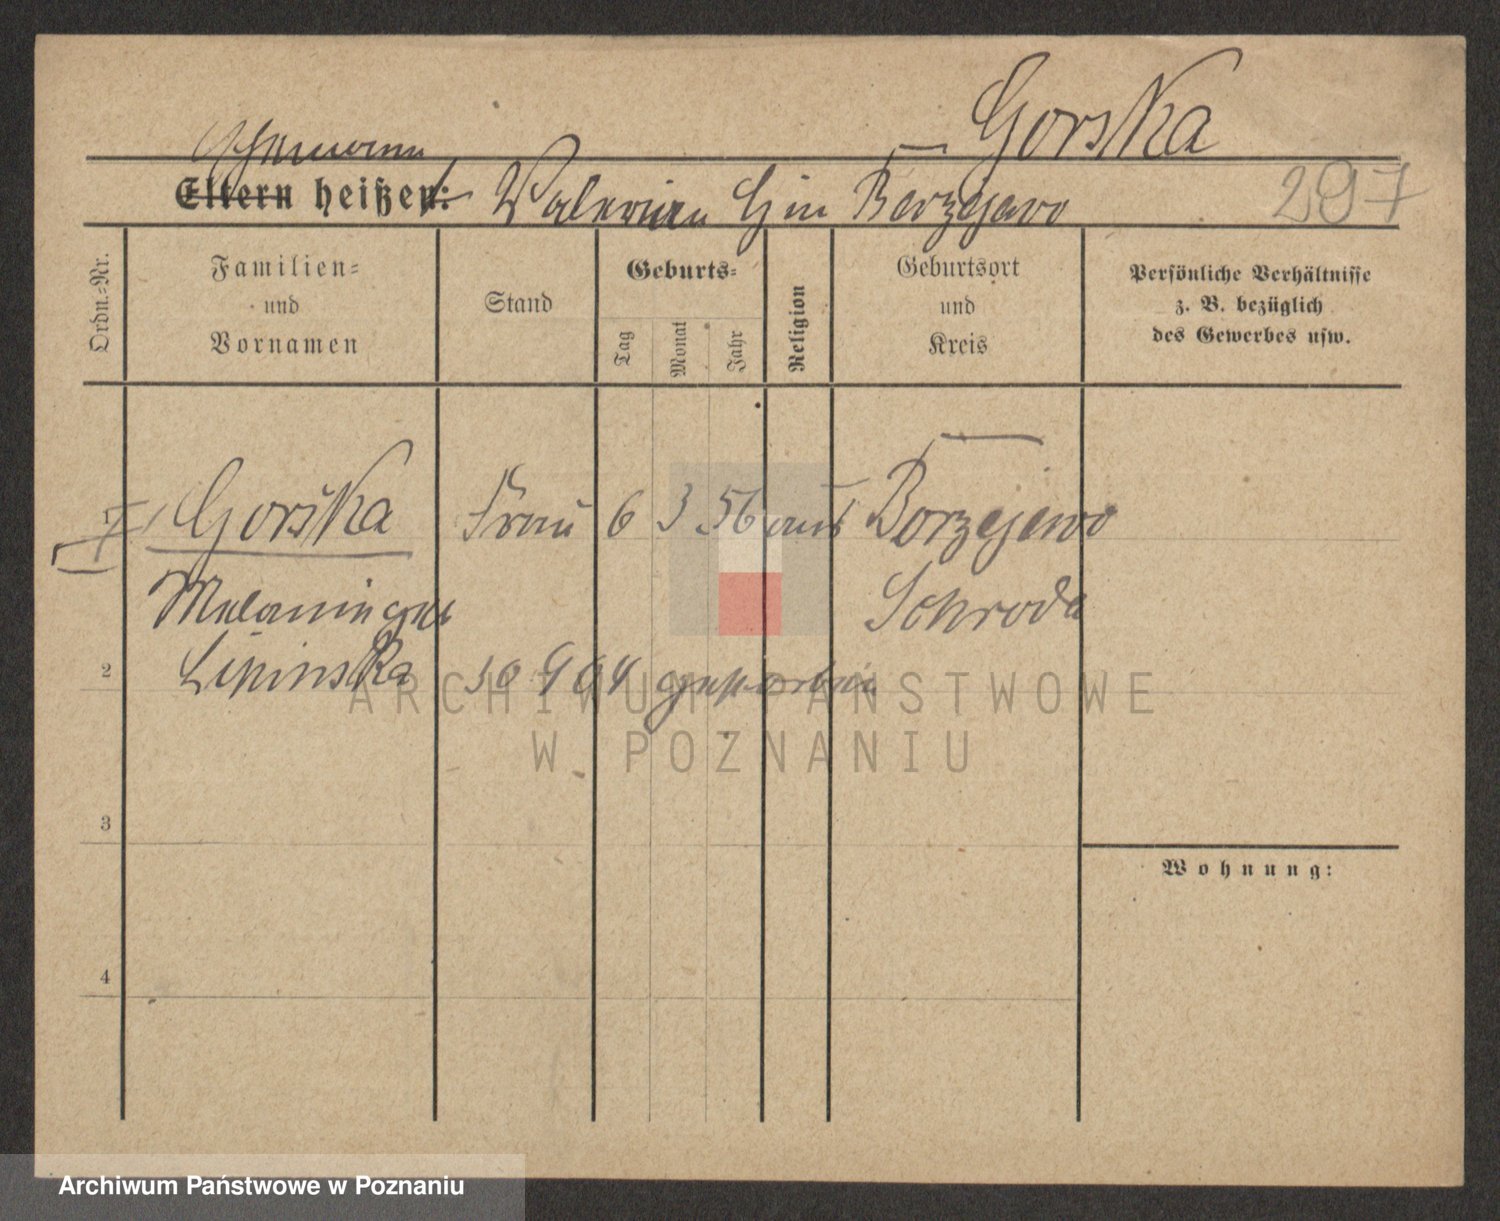 Gorska
Ehemann
Eltern heißen: Valerian G in Borzejewo 297
Ordn.-Nr.
Familien-
und
Vornamen
Stand
Geburts-
Tag
Monat
Jahr
Religion
Geburtsort
und
Kreis
Persönliche Verhältnisse
z. B. bezüglich
des Gewerbes usw.
1 Gorska Frau 6 3 56 aus Borzejewo
Melanie geb Schroda
2 Lipinska 10 9 04 gestorben
3
4
Wohnung:
ARCHIWUM PAŃSTWOWE
W POZNANIU
Archiwum Państwowe w Poznaniu